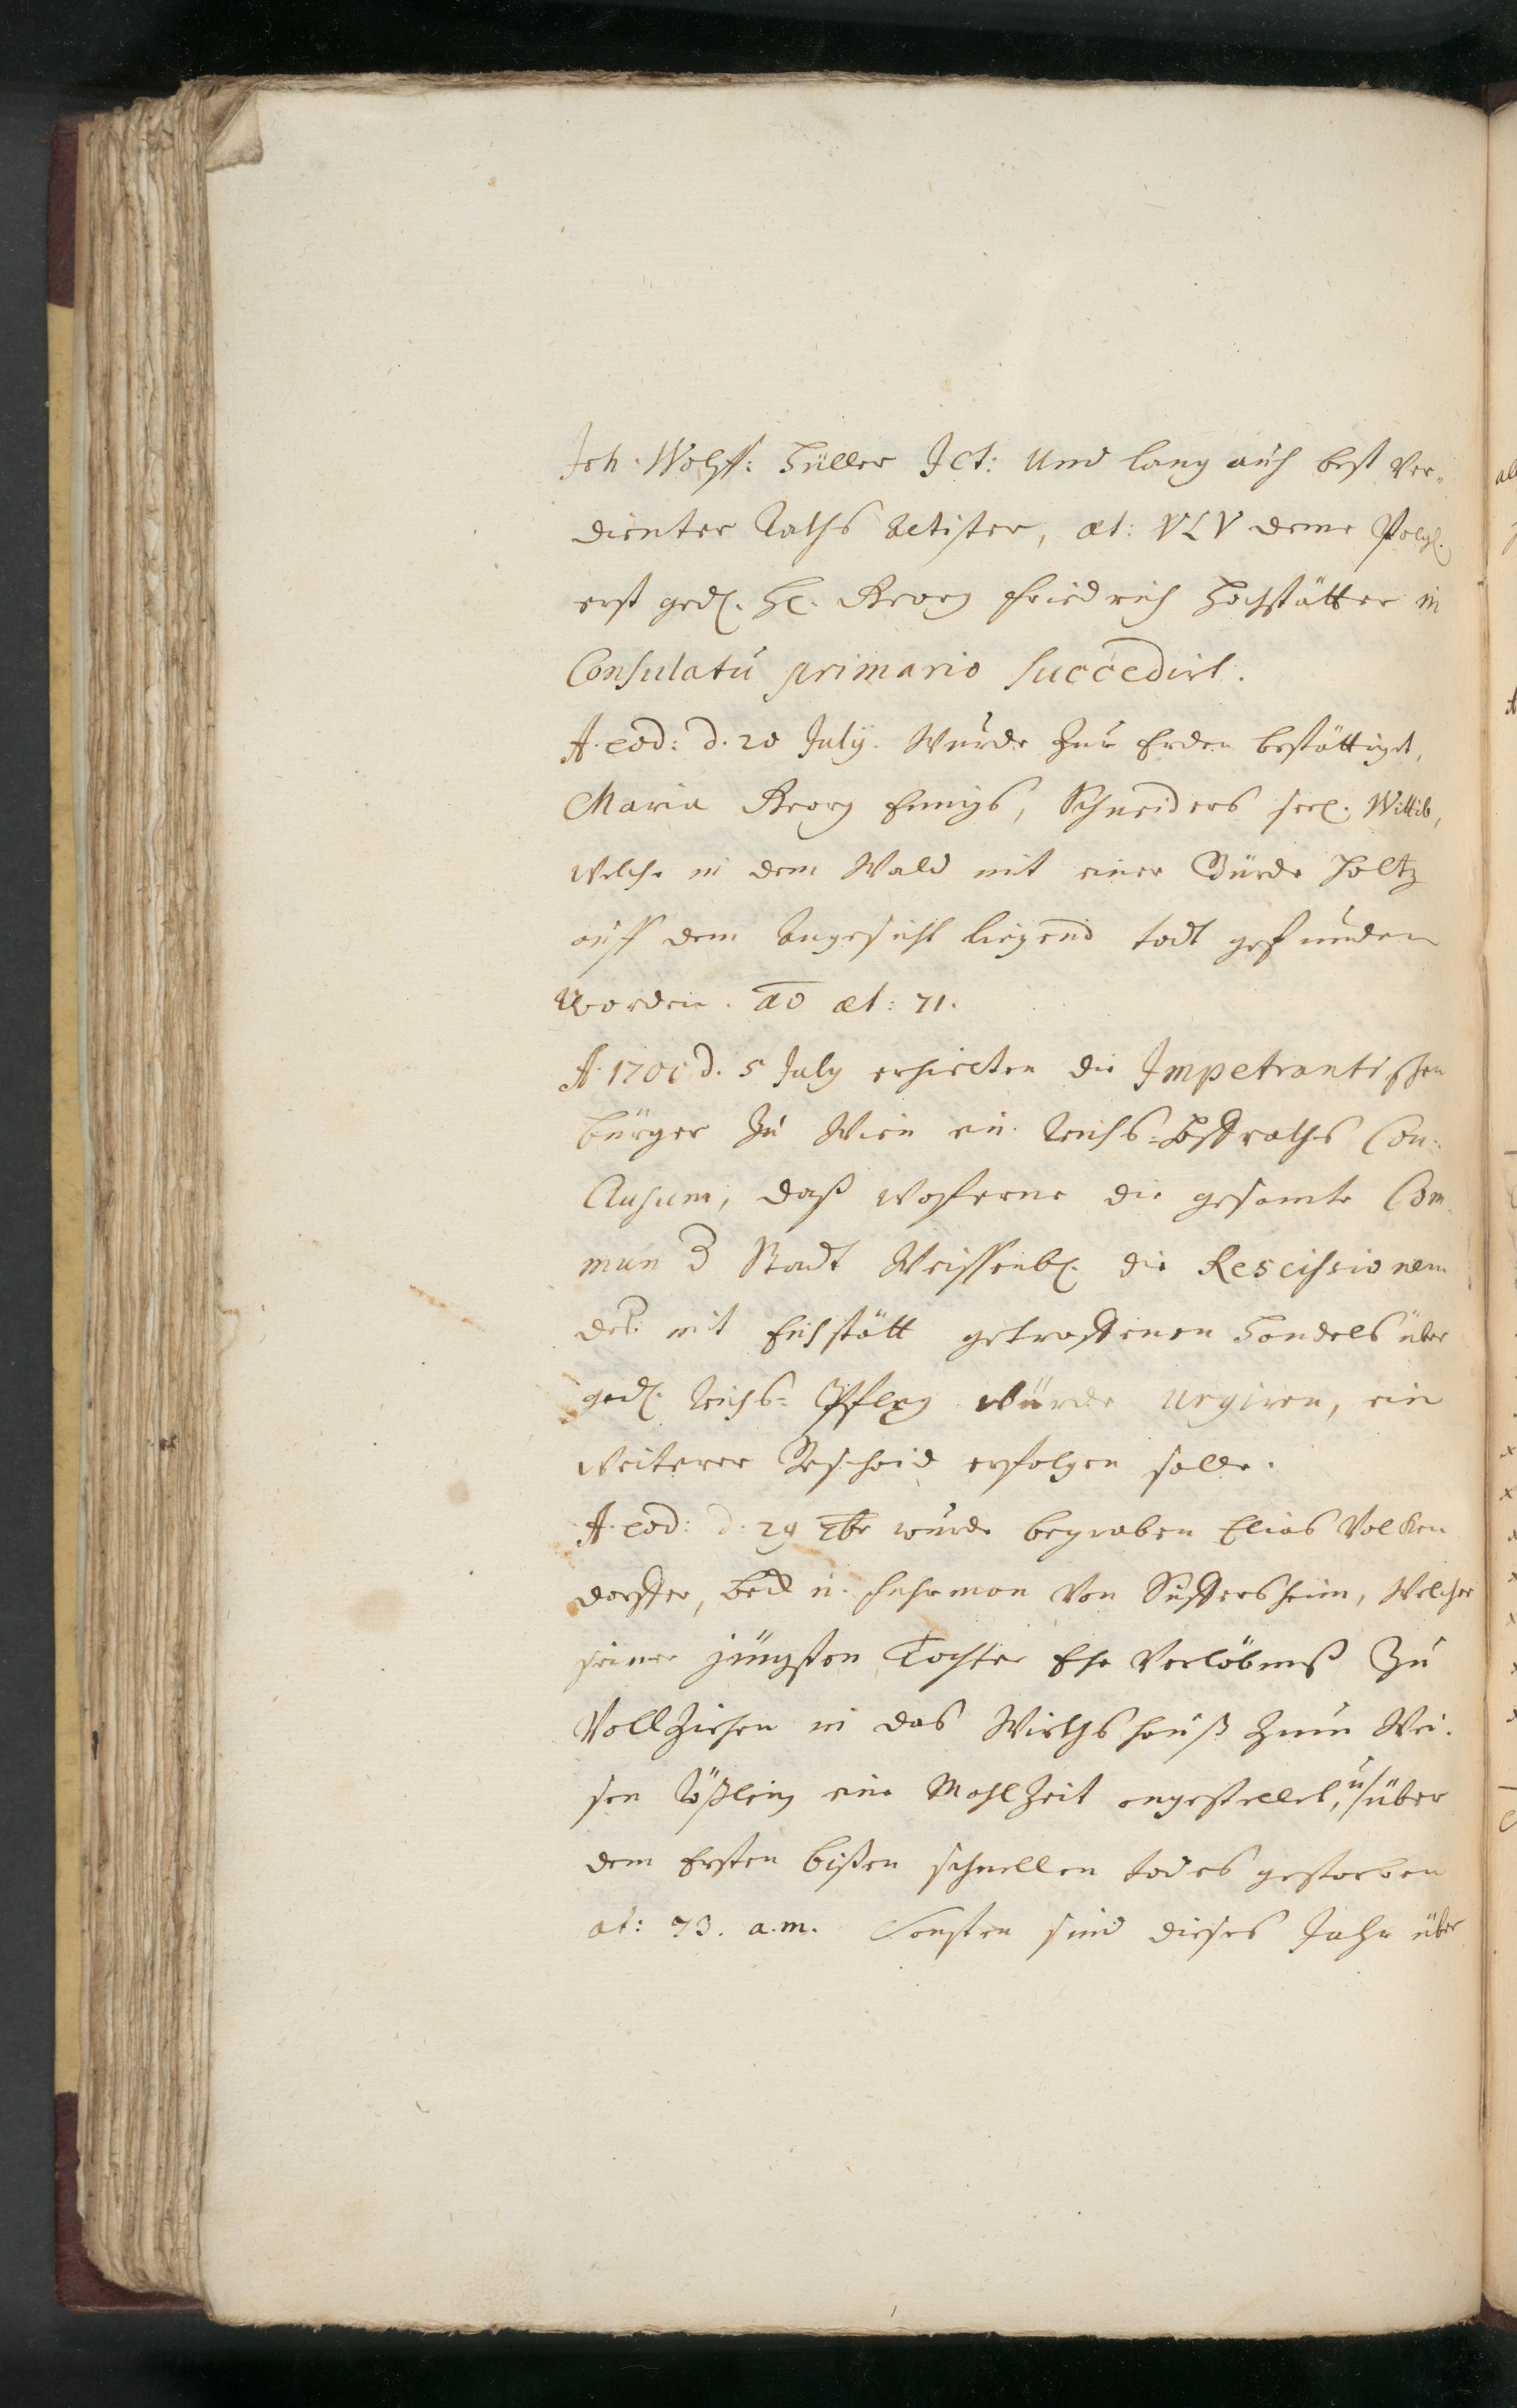 Joh. Wolff: Hüller JCt: Und lang auch best ver=
dienter Raths Actister, æt: VLV deme
erst ged. H. Georg Friedrich Hochstätter in
Consulatu primario succedirt.
A. eod: d. 20 July. Wurde zur Erden bestättiget,
Maria Georg Emigs, Schneiders seel. Wittib,
welche in dem Wald mit einer Bürde Holtz
auff dem Angesicht liegend todt gefunden
worden. ao æt: 71.
A. 1700 d. 5 July erhielten die Impetrantischen
bürger zu Wien ein Reichs=Hoffraths Con=
clusum, daß wofferne die gesamte Com
mun d Stadt Weissenb. die Rescissionem
deß mit Eichstätt getroffenen Handels über
ged. Reichs=Pfleg würde urgiren, ein
weiterer Bescheid erfolgen solle.
A. eod: d. 29 wurde begraben Elias Volken
dorffer, Beck u. Fuhrman von Suffersheim, welcher
seiner jüngsten Tochter Ehe Verlöbnuß zu
Vollziehen in das Wirthshauß zum Wei=
sen Rößlein eine Mahlzeit angestellet, u über
dem Ersten bißen schnellen todes gestorben
æt: 73. a. m. Sonsten sind dieses Jahr über